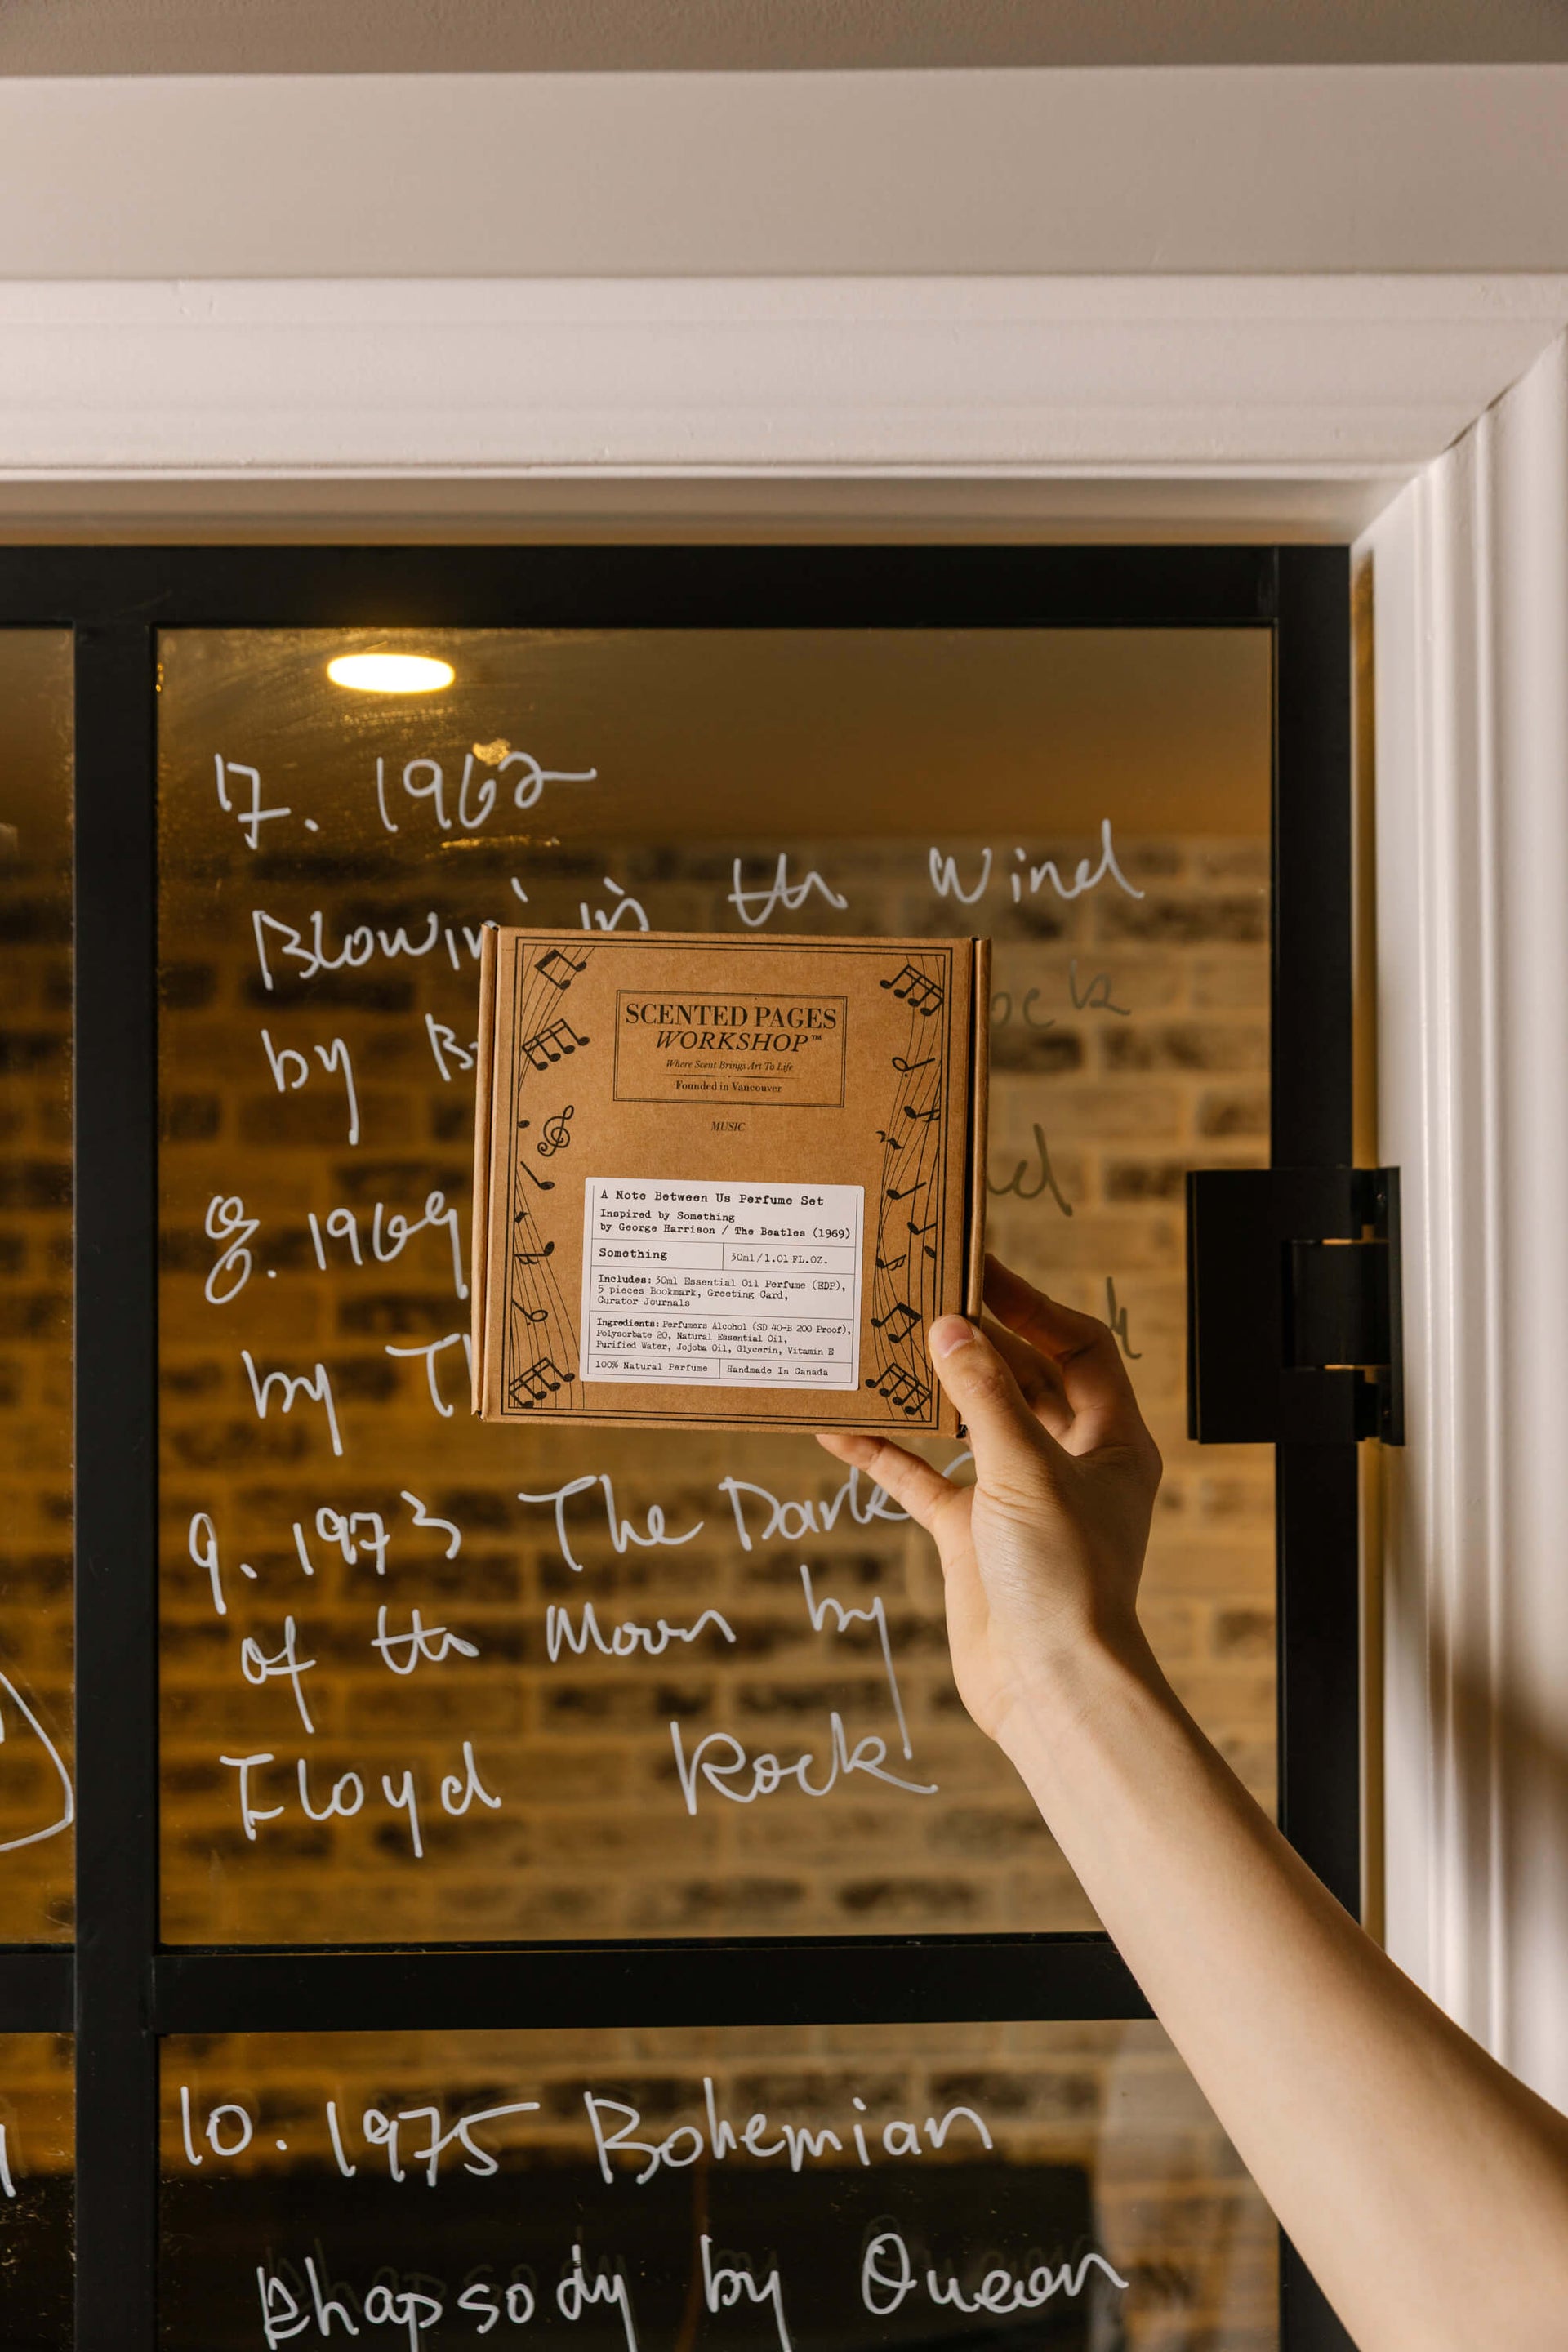 7. 1962
Blowin' in the Wind
by B
8. 1969
by
9. 1973 The Dark
of the Moon by
Floyd Rock
10. 1975 Bohemian
Rhapsody by Queen
SCENTED PAGES
WORKSHOP™
Where Scent Brings Art To Life
Founded in Vancouver
MUSIC
A Note Between Us Perfume Set
Inspired by Something
by George Harrison / The Beatles (1969)
Something 30ml/1.01 FL.OZ.
Includes: 30ml Essential Oil Perfume (EDP),
5 pieces Bookmark, Greeting Card,
Curator Journals
Ingredients: Perfumers Alcohol (SD 40-B 200 Proof),
Polysorbate 20, Natural Essential Oil,
Purified Water, Jojoba Oil, Glycerin, Vitamin E
100% Natural Perfume Handmade In Canada